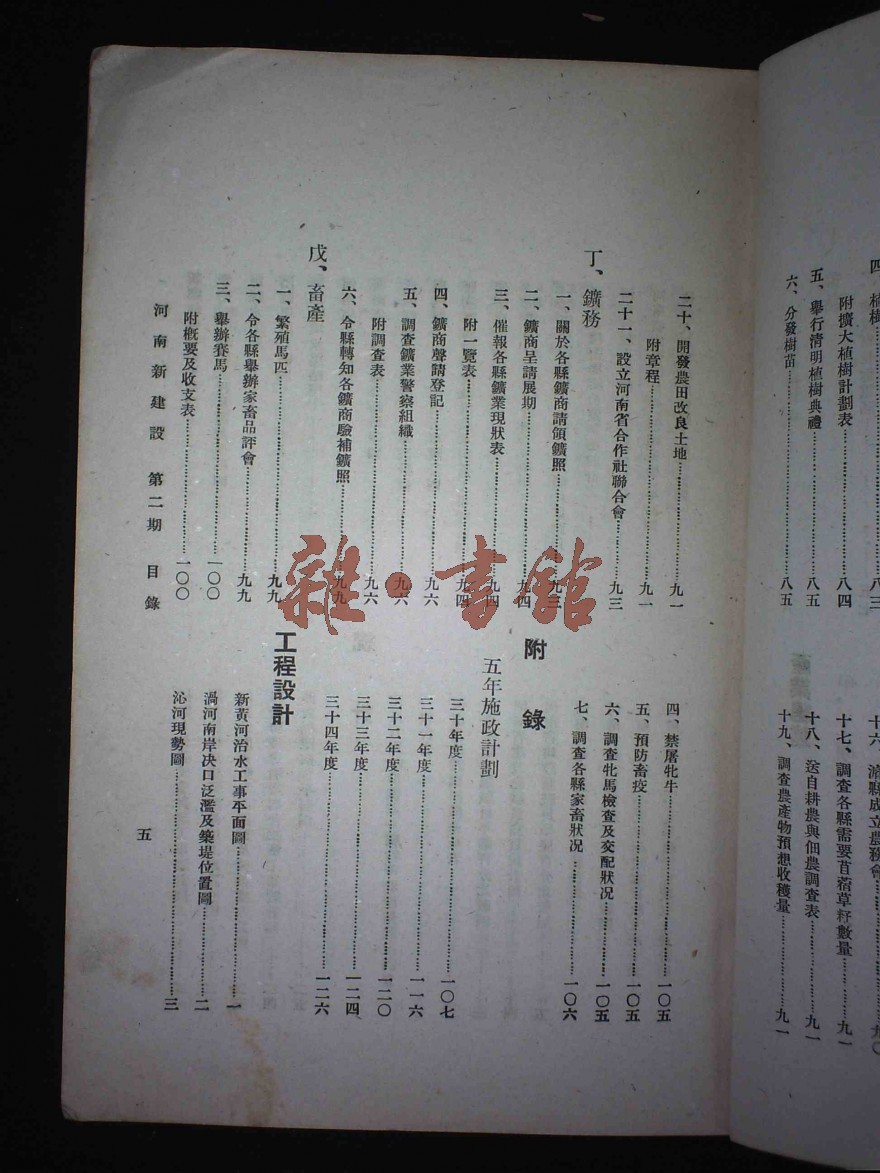 四、植樹……八三
附擴大植樹計劃表……八四
五、舉行清明植樹典禮……八五
六、分發樹苗……八五
十六、濬縣成立農務會……九〇
十七、調查各縣需要苜蓿草籽數量……九一
十八、送自耕農與佃農調查表……九一
十九、調查農產物預想收穫量……九一
二十、開發農田改良土地……九一
附章程……九一
二十一、設立河南省合作社聯合會……九三
丁、鑛務
一、關於各縣鑛商請領鑛照……九三
二、鑛商呈請展期……九四
三、催報各縣鑛業現狀表……九四
附一覽表……九四
四、鑛商聲請登記……九六
五、調查鑛業警察組織……九六
附調查表……九六
六、令縣轉知各鑛商驗補鑛照……九九
戊、畜產
一、繁殖馬匹……九九
二、令各縣舉辦家畜品評會……九九
三、舉辦賽馬……一〇〇
附概要及收支表……一〇〇
四、禁屠牝牛……一〇五
五、預防畜疫……一〇五
六、調查牝馬檢查及交配狀况……一〇五
七、調查各縣家畜狀况……一〇六
附錄
五年施政計劃
三十年度……一〇七
三十一年度……一一六
三十二年度……一二〇
三十三年度……一二四
三十四年度……一二六
工程設計
新黃河治水工事平面圖……一
渦河南岸决口泛濫及築堤位置圖……二
沁河現勢圖……三
河南新建設 第二期 目錄
五
雜·書館